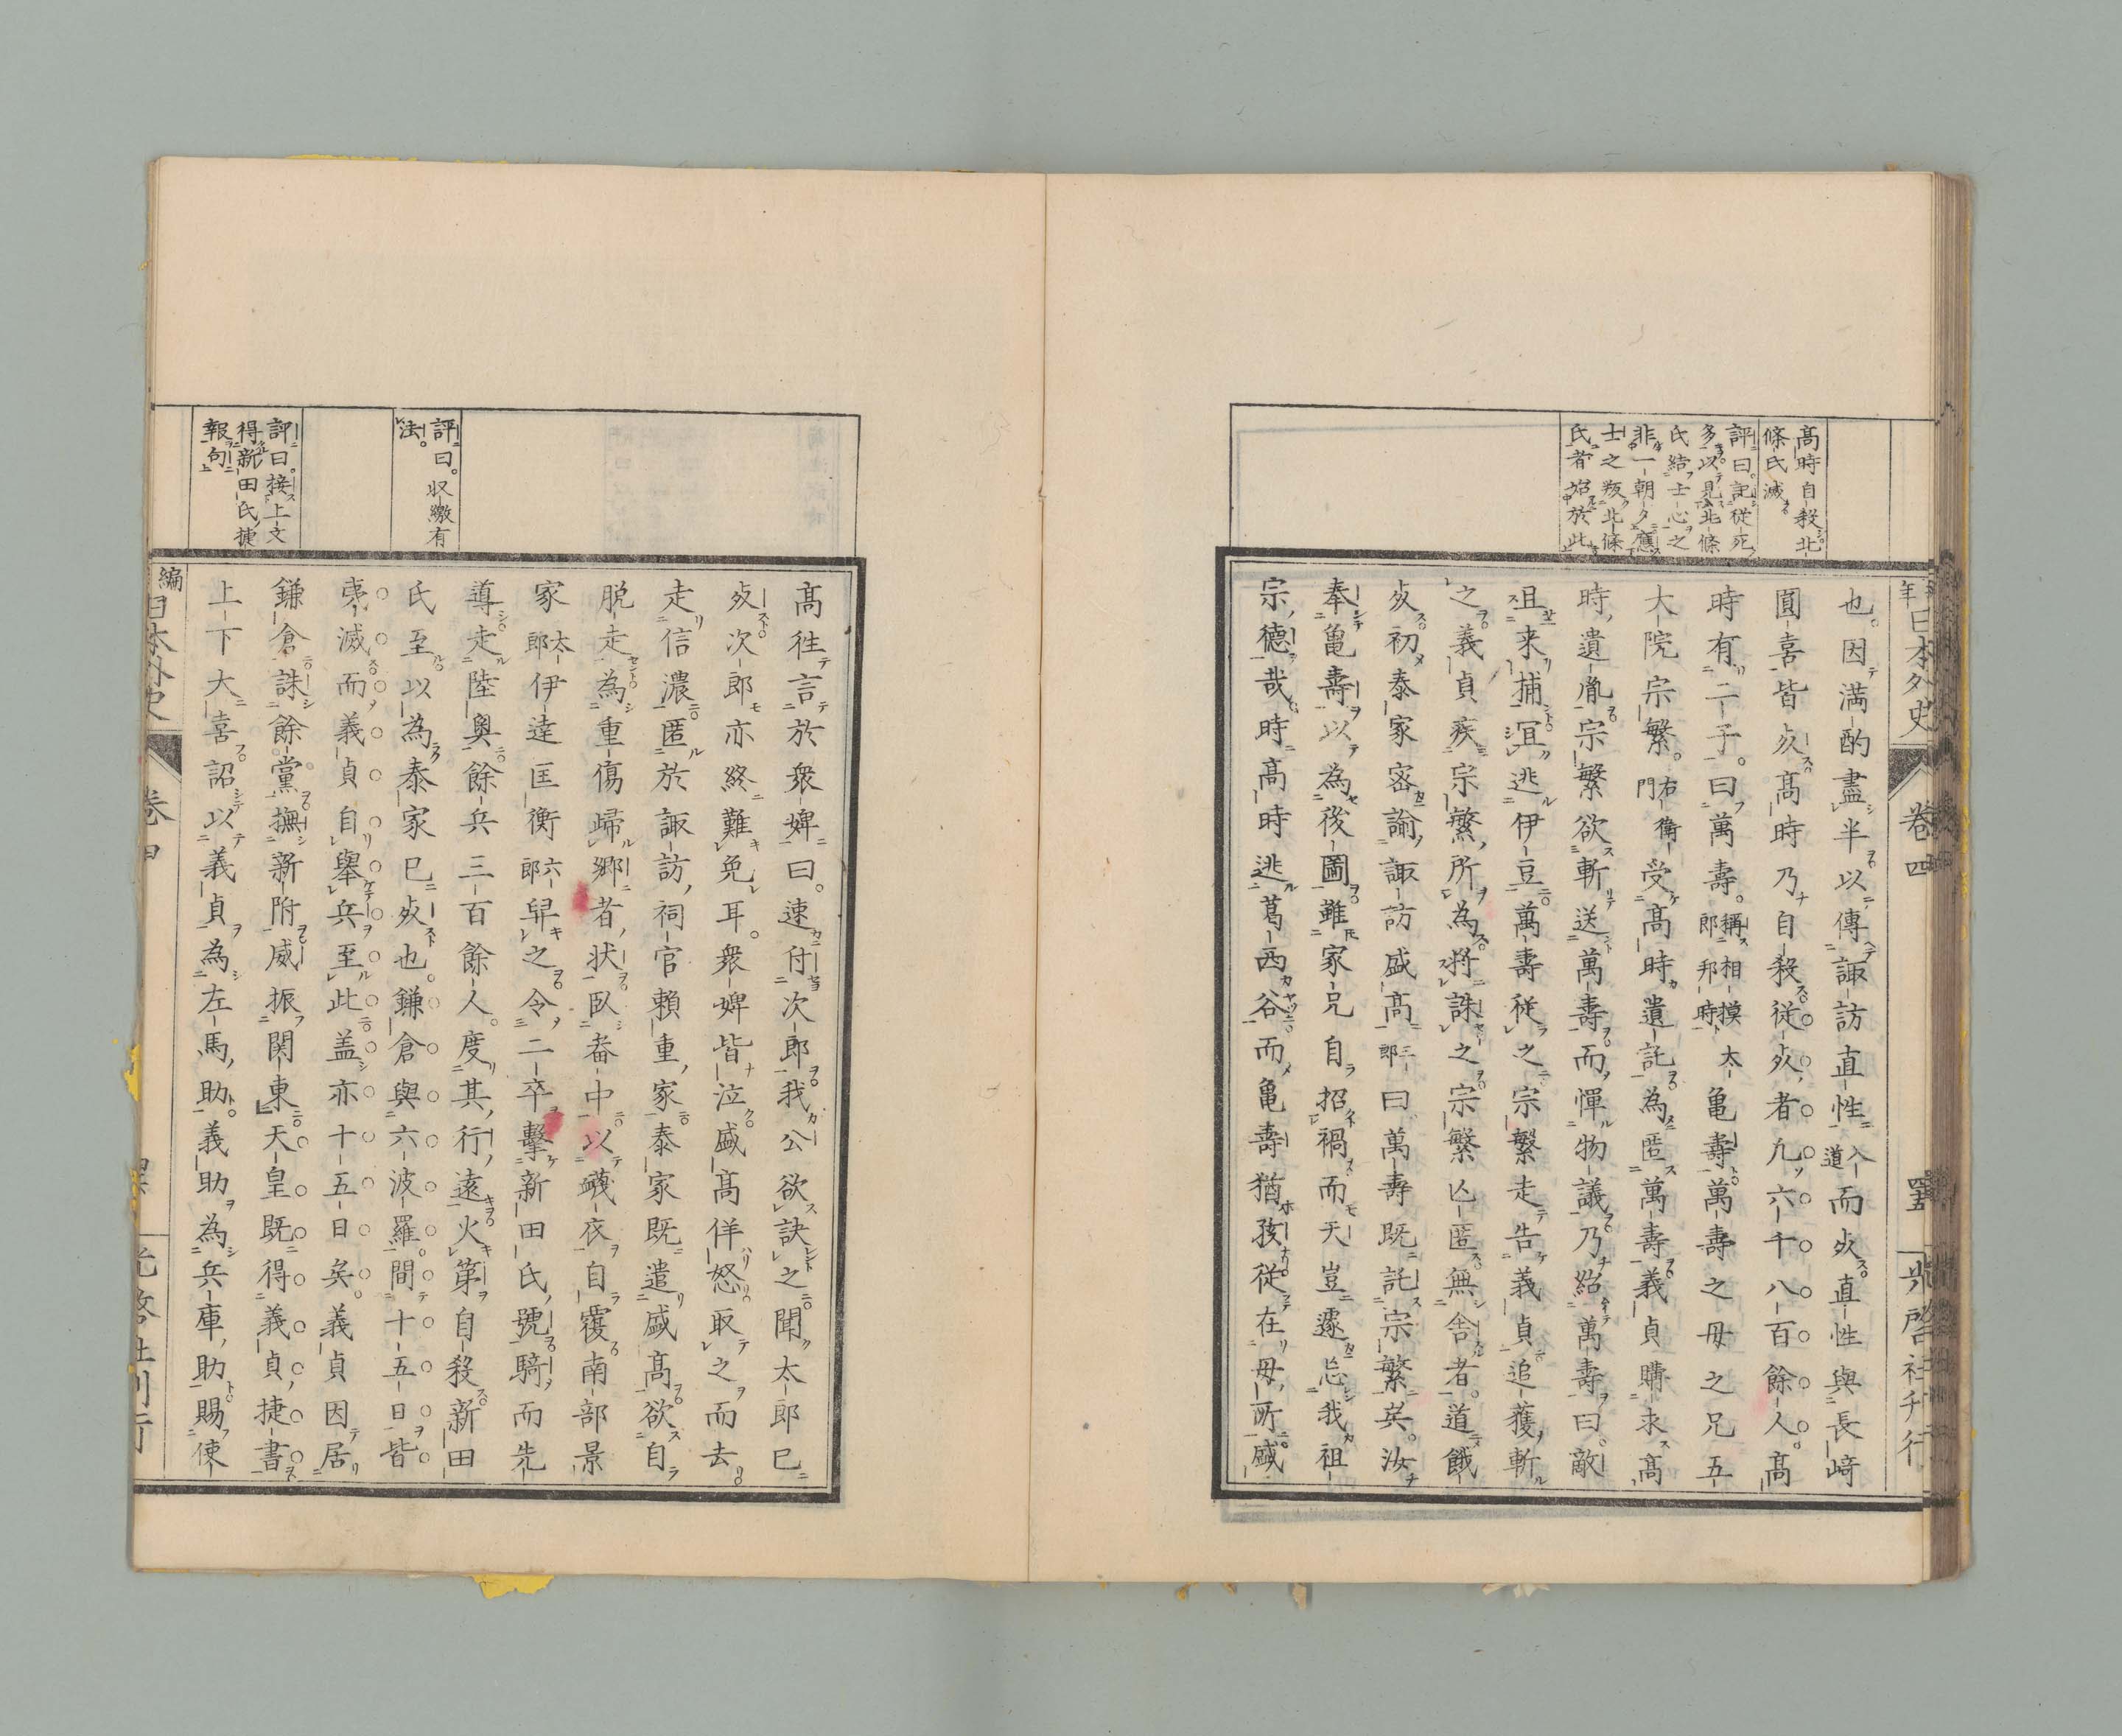 高時自殺北
條氏滅
評曰。記從死
多以見北條
氏結士心之
非一朝夕應
士之叛北條
氏者始於此
日本外史 卷四 光啓社刊行
也。因満酌盡半以傳諏訪直性入道而死直性與長﨑
圓喜皆死高時乃自殺從死者凡六千八百餘人。高
時有二子。曰萬壽。稱相摸太郎邦時龜壽萬壽之母之兄五
大院宗繁。右衛門受高時遺託為匿萬壽義貞購求高
時遺胤宗繁欲斬送萬壽而憚物議乃紿萬壽曰。敵
且来捕冝逃伊豆萬壽従之宗繁走告義貞追獲斬
之義貞疾宗繁所為將誅之宗繁亾匿無舎者。道餓
死初泰家密諭諏訪盛高三郎曰萬壽既託宗繁矣。汝
奉龜壽以為後圖雖家兄自招禍而天豈遽忘我祖
宗德哉時高時逃葛西谷而龜壽猶孩従在母所盛
高徃言於衆婢曰。速付次郎我公欲訣之聞太郎已
死次郎亦終難免耳。衆婢皆泣盛高佯怒取之而去
走信濃匿於諏訪祠官賴重家泰家既遣盛高欲自
脱走為重傷歸郷者状臥畚中以衊衣自覆南部景
家太郎伊達匡衡六郎舁之令二卒擊新田氏號騎而先
導走陸奥餘兵三百餘人。度其行遠火第自殺新田
氏至以為泰家已死也。鎌倉與六波羅間十五日皆
夷滅而義貞自舉兵至此盖亦十五日矣。義貞因居
鎌倉誅餘黨撫新附威振関東天皇既得義貞捷書
上下大喜詔以義貞為左馬助義助為兵庫助賜使
評曰。収繳有
法。
評曰。接上文
得新田氏捷
報句
編 日本外史 卷四 光啓社刊行